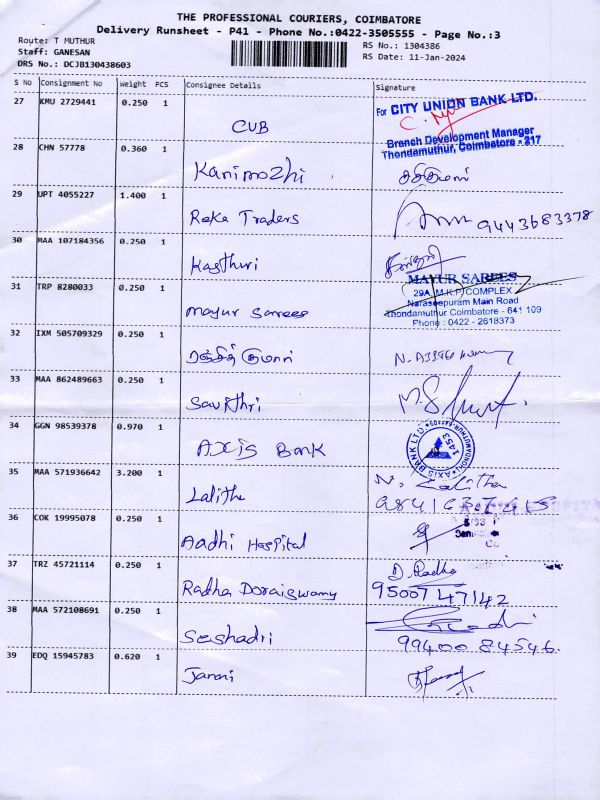 THE PROFESSIONAL COURIERS, COIMBATORE
Delivery Runsheet - P41 - Phone No.:0422-3505555 - Page No.:3
Route: T MUTHUR
Staff: GANESAN
DRS No.: DCJB130438603
RS No.: 1304386
RS Date: 11-Jan-2024
S No Consignment No Weight PCS Consignee Details Signature
27 KMU 2729441 0.250 1
For CITY UNION BANK LTD.
CUB
Branch Development Manager
Thondamuthur, Coimbatore - 217
28 CHN 57778 0.360 1
Kanimozhi
29 UPT 4055227 1.400 1
Reka Traders 9443683378
30 MAA 107184356 0.250 1
Kasthuri
31 TRP 8280033 0.250 1
MAYUR SAREES
29A, M.K.P. COMPLEX
Naraseepuram Main Road
Thondamuthur Coimbatore - 641 109
Phone : 0422 - 2618373
Mayur Sarees
32 IXM 505709329 0.250 1
ரஞ்சித் குமார்
33 MAA 862489663 0.250 1
Savithri
34 GGN 98539378 0.970 1
Axis Bank
AXIS BANK LTD
1453
35 MAA 571936642 3.200 1
Lalitha N. Lalitha
36 COK 19995078 0.250 1
Aadhi Hospital
37 TRZ 45721114 0.250 1
D. Radha
Radha Doraiswamy 9500747142
38 MAA 572108691 0.250 1
Seshadri
9940084546.
39 EDQ 15945783 0.620 1
Janani